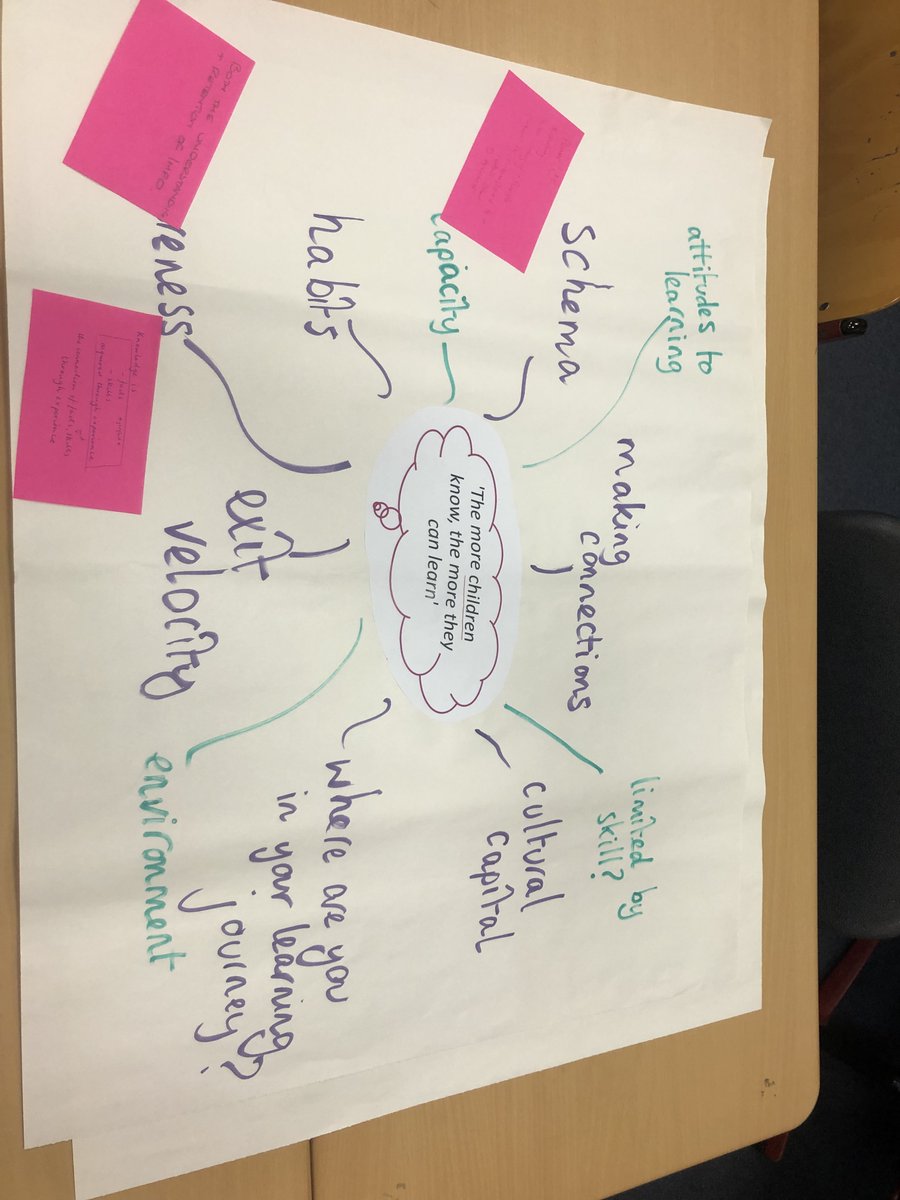 attitudes to
learning
schema
making
connections
limited by
skill?
cultural
capital
capacity
'The more children
know, the more they
can learn'
habits
where are you
in your learning
journey?
reness
exit
velocity
environment
BOTH THE UNDERSTANDING
+ RETENTION OF INFO.
Knowledge is
- facts
- skills
acquired through experience
the connection of facts, skills
through experience